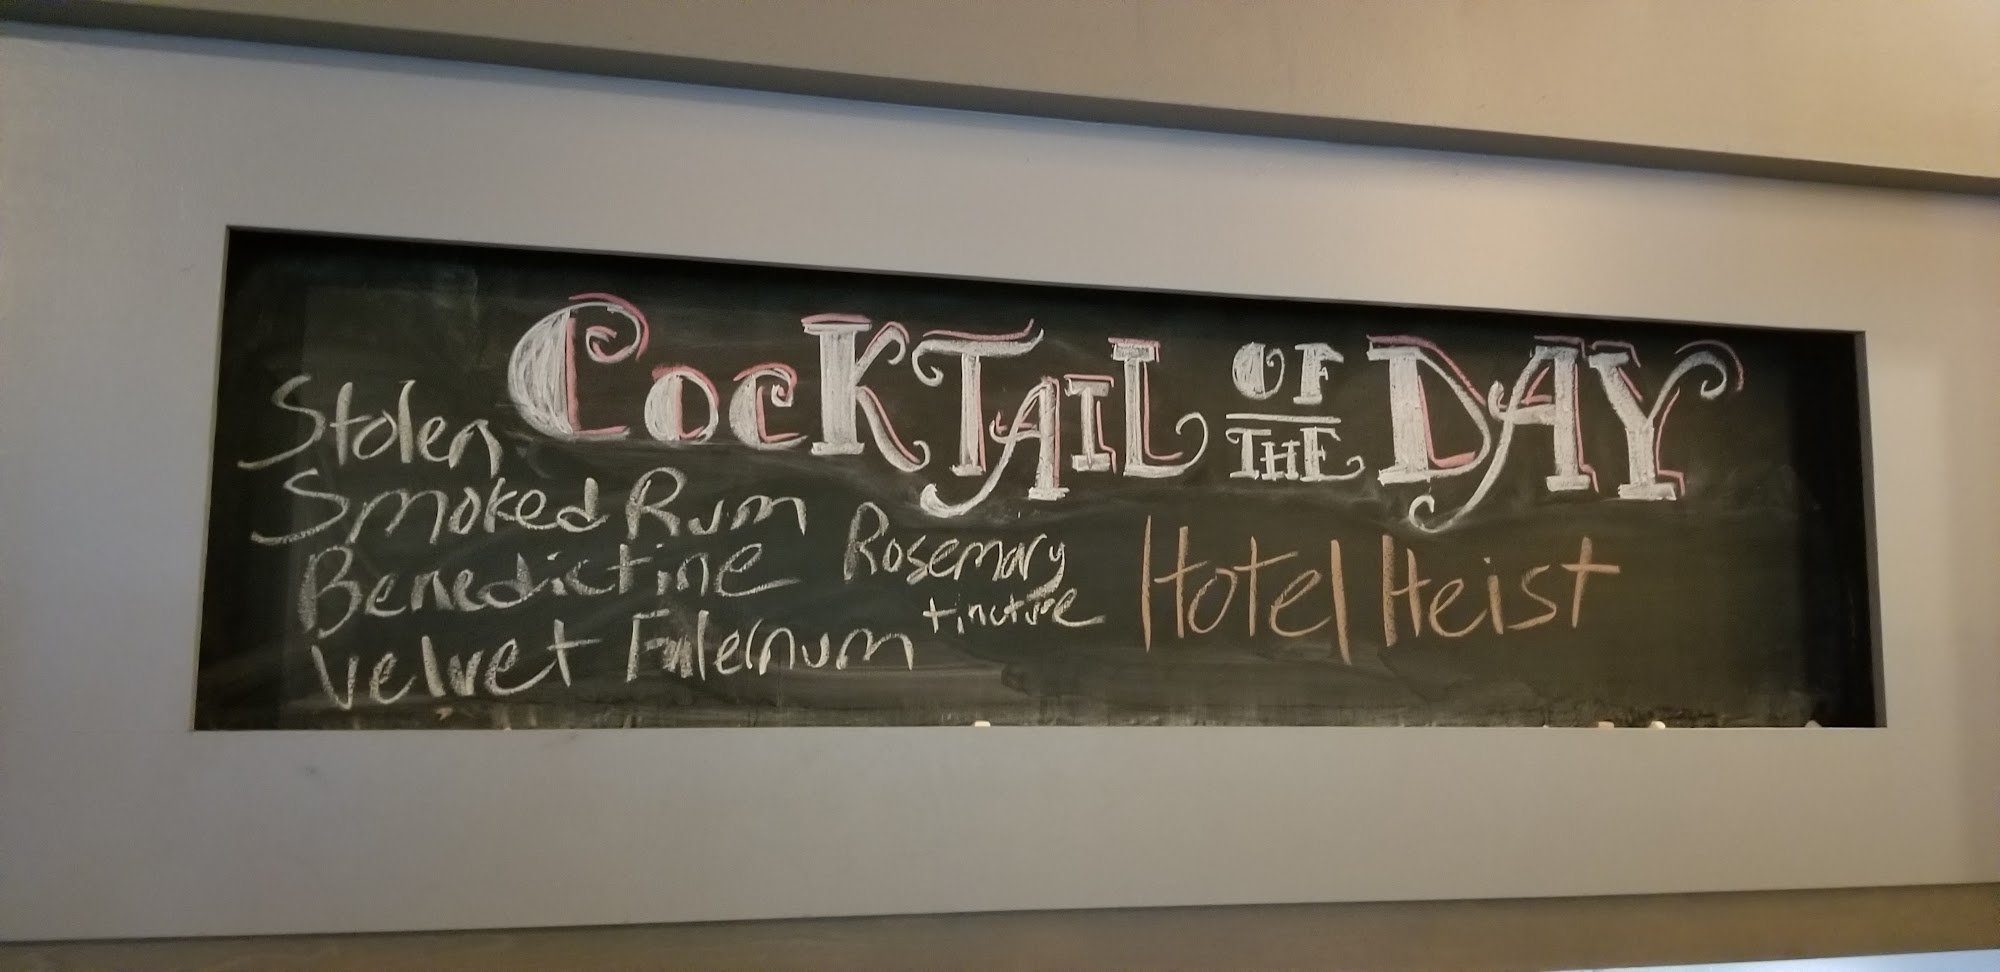 COCKTAIL OF THE DAY
Stolen
Smoked Rum
Benedictine
Velvet Falernum
Rosemary
tincture
Hotel Heist